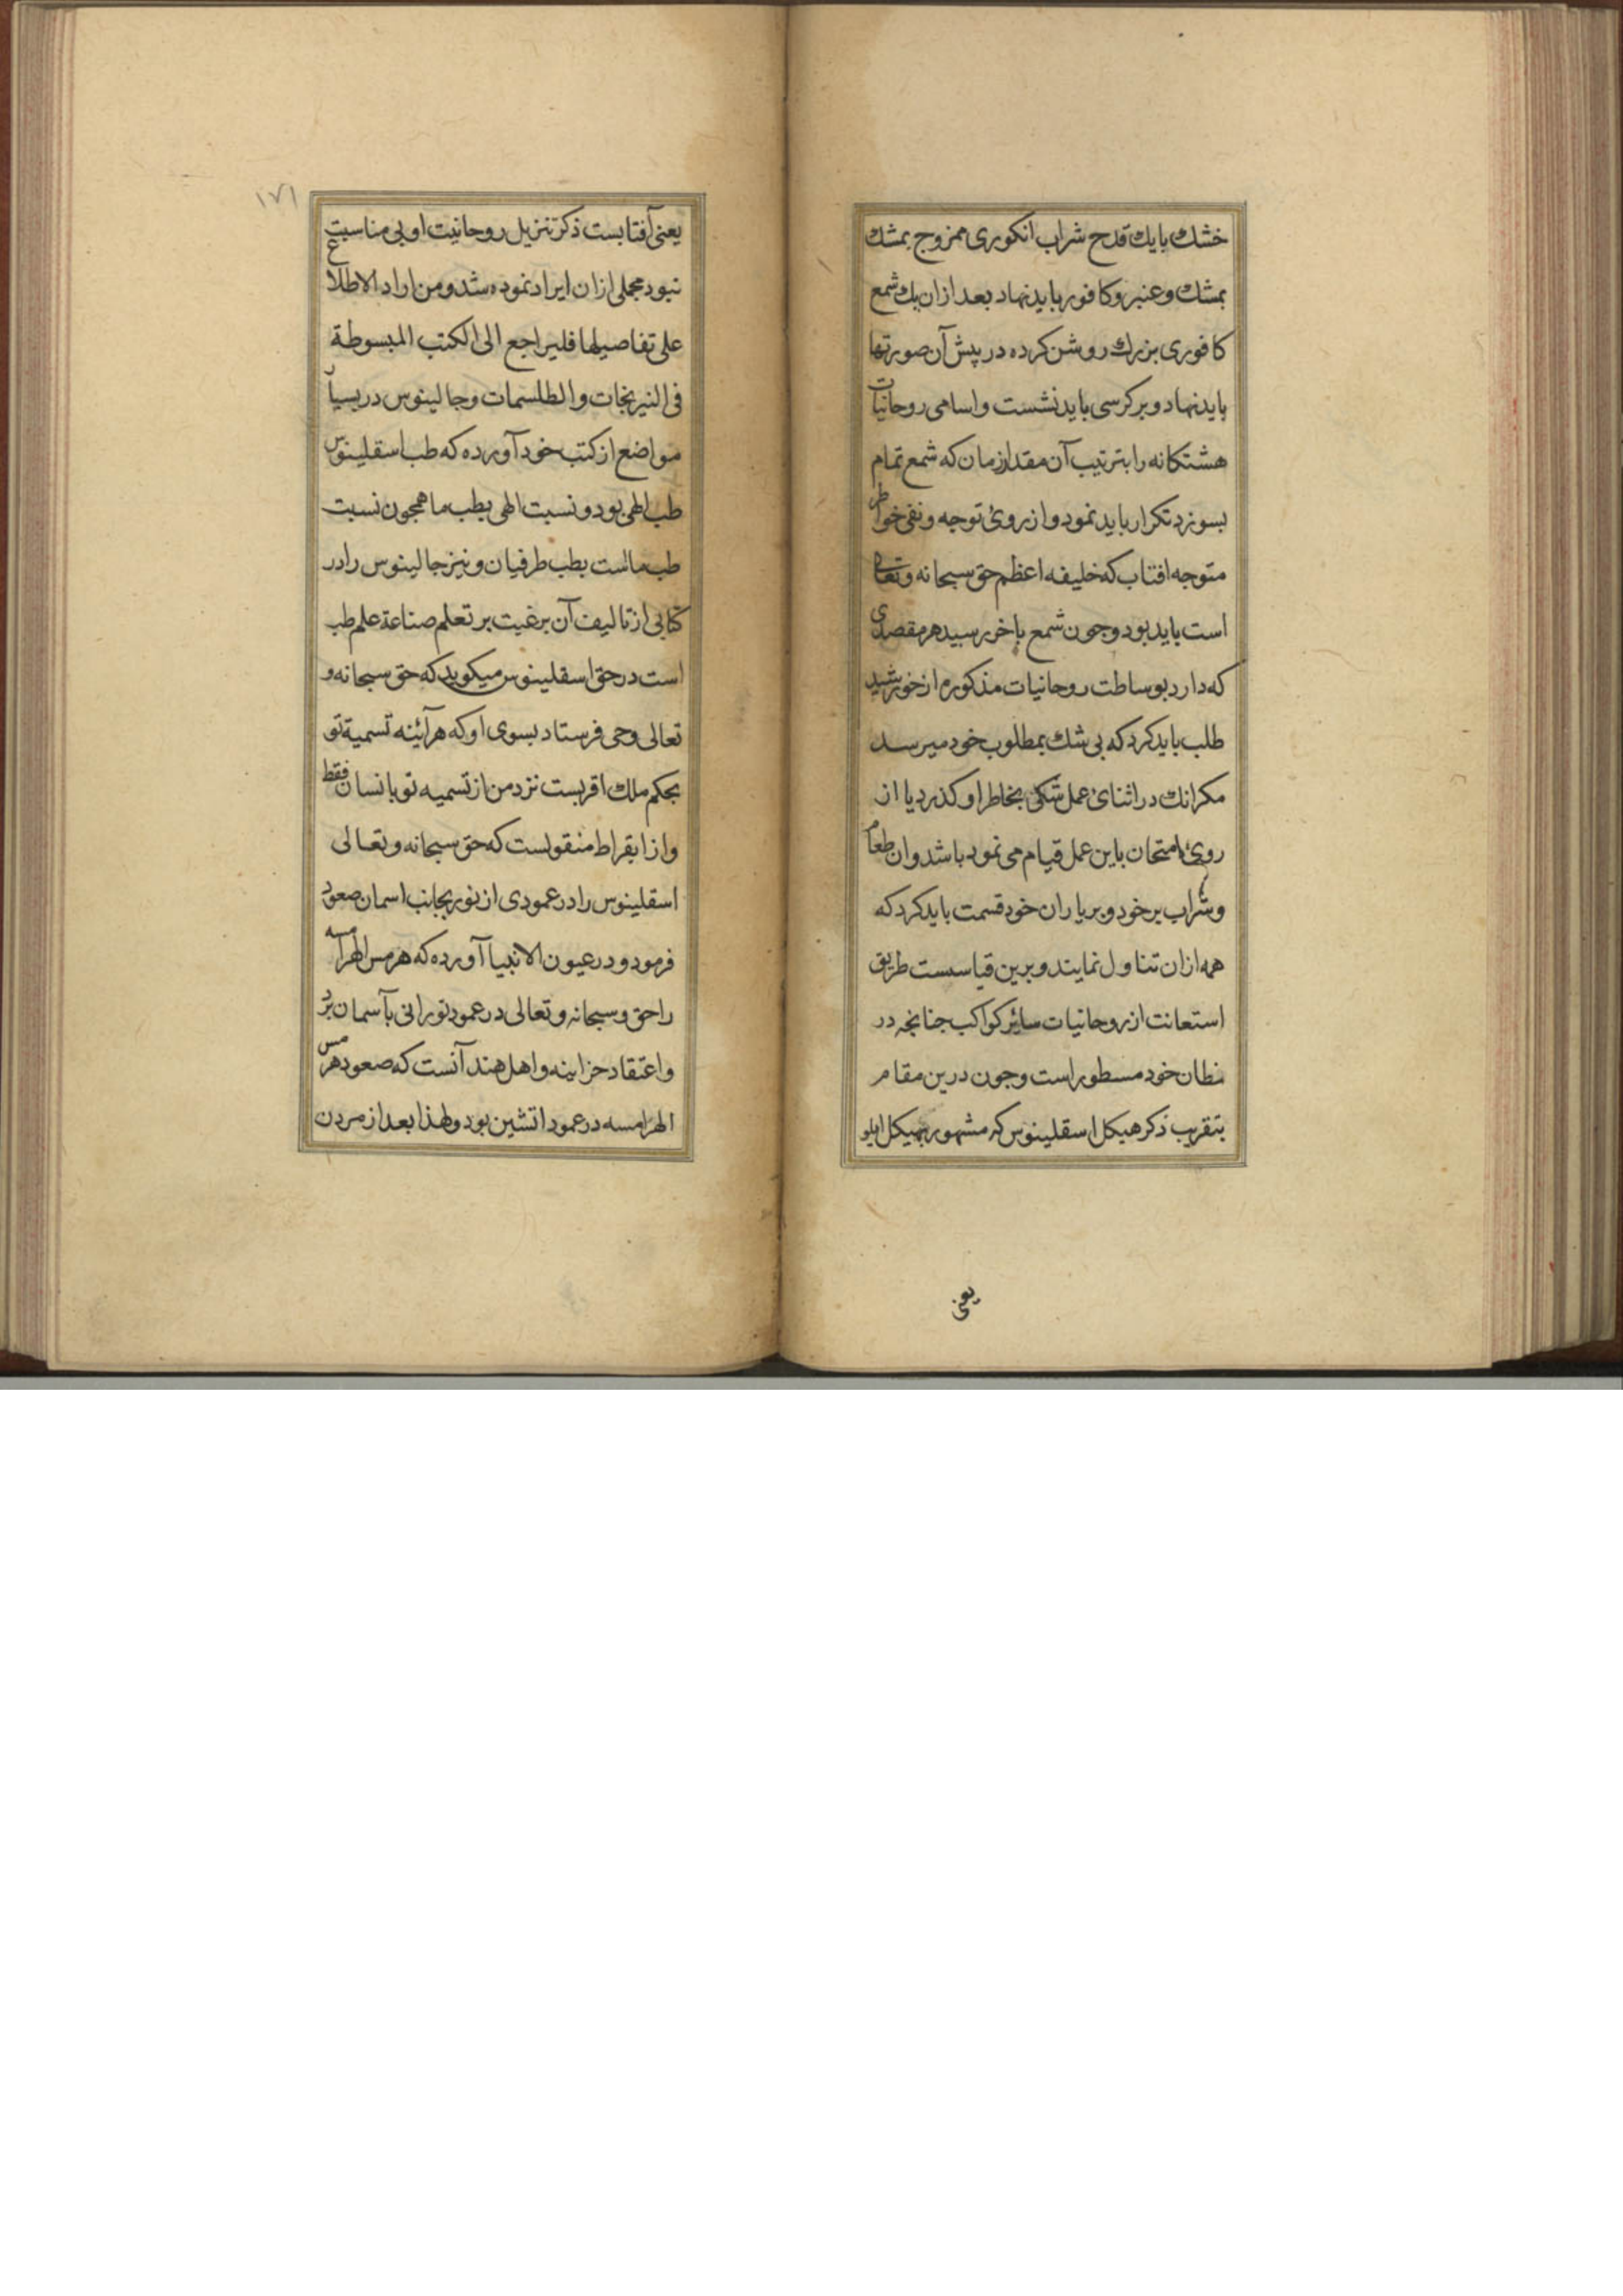 خشك بايك قدح شراب انكورى ممزوج بمشك
بمشك وعنبر وكافور بايد نهاد بعد ازان يك شمع
كافورى بزرك روشن كرده در پيش آن صورتها
بايد نهاد وبر كرسى بايد نشست واسامى روحانيات
هشتكانه را بترتيب آن مقدار زمان كه شمع تمام
بسوزد تكرار بايد نمود واز روئ توجه ونفى خواطر
متوجه افتاب كه خليفه اعظم حق سبحانه وتعالى
است بايد بود وجون شمع باخر رسيد هر مقصدى
كه دارد بوساطت روحانيات مذكوره از خورشيد
طلب بايد كرد كه بى شك بمطلوب خود ميرسد
مكر انك در اثنائ عمل شكى بخاطر او كذرد يا از
روئ امتحان باين عمل قيام مى نمود باشد وان طعام
وشراب بر خود وبر ياران خود قسمت بايد كرد كه
همه ازان تناول نمايند وبرين قياسست طريق
استعانت از روحانيات سائر كواكب جنانجه در
مظان خود مسطور است وجون درين مقام
بتقريب ذكر هيكل اسقلينوس كه مشهور بهيكل ابلو
يعنى
١٧١
يعنى آفتابست ذكر تنزيل روحانيت او بى مناسبت
نبود مجملى ازان ايراد نموده شد ومن اراد الاطلاع
على تفاصيلها فليراجع الى الكتب المبسوطة
فى النيرنجات والطلسمات وجالينوس در بسيار
مواضع از كتب خود آورده كه طب اسقلينوس
طب الهى بود ونسبت الهى بطب ما همجون نسبت
طب ماست بطب طرفيان ونيز جالينوس را در
كتابى از تاليف آن برغيت بر تعلم صناعة علم طب
است در حق اسقلينوس ميكويد كه حق سبحانه و
تعالى وحى فرستاد بسوى او كه هر آئينه تسمية تو
بحكم ملك اقربست نزد من از تسميه تو بانسان فقط
واز ابقراط منقولست كه حق سبحانه وتعالى
اسقلينوس را در عمودى از نور بجانب اسمان صعود
فرمود ودر عيون الانبيا آورده كه هرمس الهرامسه
را حق وسبحانه وتعالى در عمود نورانى بآسمان برد
واعتقاد حزاينه واهل هند آنست كه صعود هرمس
الهرامسه در عمود اتشين بود ولهذا بعد از مردن